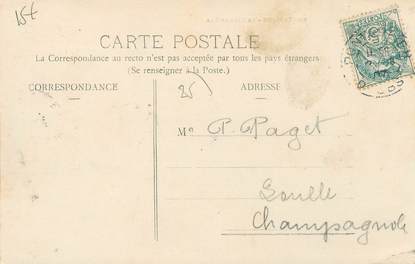 15€
CARTE POSTALE
La Correspondance au recto n'est pas acceptée par tous les pays étrangers
(Se renseigner à la Poste.)
CORRESPONDANCE
25
ADRESSE
M. P. Paget
Champagnole